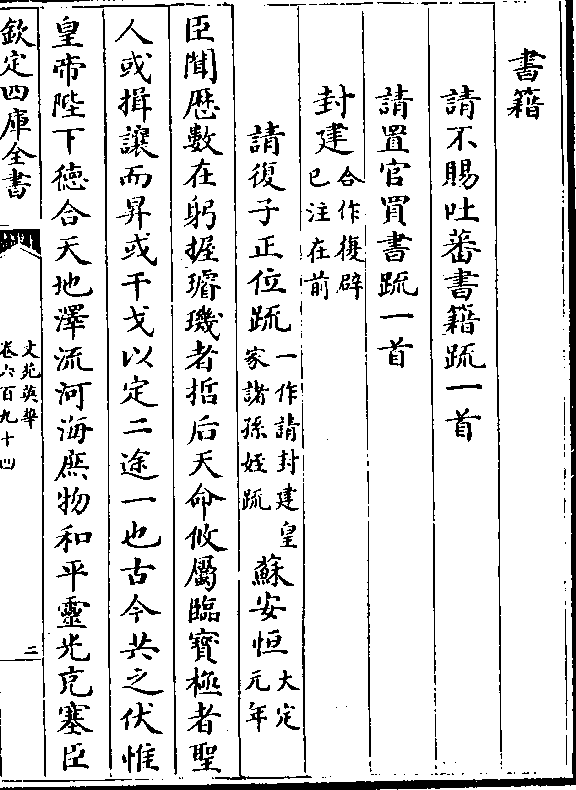 書籍
請不賜吐蕃書籍疏一首
請置官買書疏一首
封建合作復辟已注在前
請復子正位疏一作請封建皇家諸孫姪疏蘇安恒大定元年
臣聞歴數在躬握璿璣者哲后天命攸屬臨寳極者聖
人或揖讓而昇或干戈以定二途一也古今共之伏惟
皇帝陛下徳合天地澤流河海庶物和平靈光充塞臣
欽定四庫全書
文苑英華
卷六百九十四
三